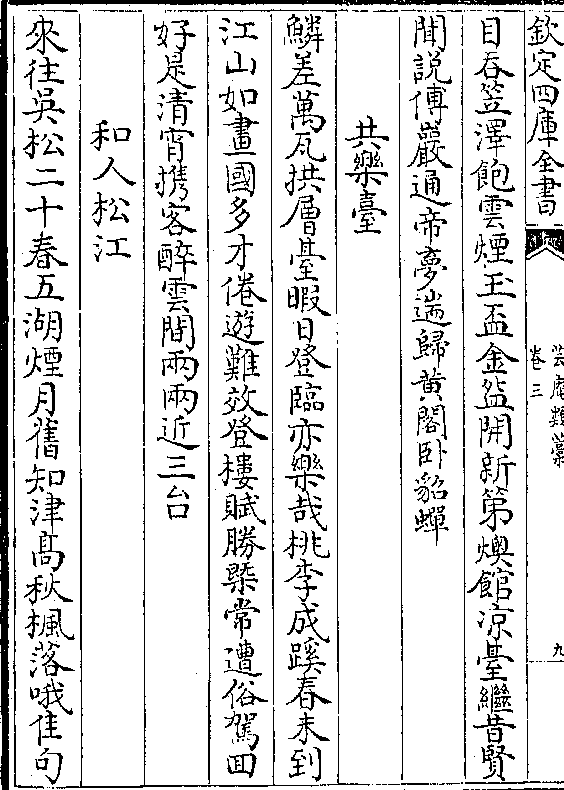 欽定四庫全書
芸庵類藁
卷三
九
目吞笠澤飽雲煙玉盃金盆開新第燠館凉臺繼昔賢
聞説傅巖通帝夢遄歸黄閣卧貂蟬
共樂臺
鱗差萬瓦拱層臺暇日登臨亦樂哉桃李成蹊春未到
江山如畫國多才倦遊難效登樓賦勝槩常遭俗駕囬
好是清宵携客醉雲間兩兩近三台
和人松江
來往吳松二十春五湖煙月舊知津髙秋楓落哦佳句